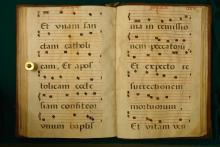 Et vnam san
ctam catholi
cam, Et apos
tolicam eccle
siam confiteor
vnum baptis
ma in remissio
nem peccatorū
Et expecto re
surrectionem
mortuorum.
Et vitam ven